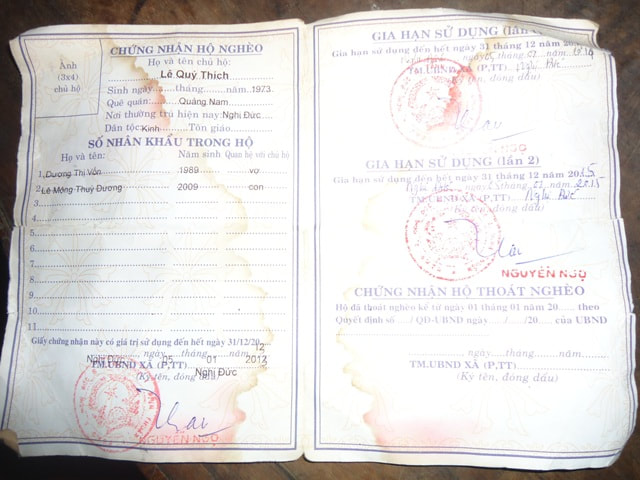 Ảnh
(3x4)
chủ hộ
CHỨNG NHẬN HỘ NGHÈO
Họ và tên chủ hộ:
Lê Quý Thích
Sinh ngày......tháng......năm 1973
Quê quán: Quảng Nam
Nơi thường trú hiện nay: Nghị Đức
Dân tộc: Kinh Tôn giáo
SỐ NHÂN KHẨU TRONG HỘ
Họ và tên: Năm sinh Quan hệ với chủ hộ
1. Dương Thị Vốn 1989 vợ
2. Lê Mộng Thuý Đương 2009 con
3.
4.
5.
6.
7.
8.
9.
10.
11.
Giấy chứng nhận này có giá trị sử dụng đến hết ngày 31/12/2012
Nghị Đức ngày 05 tháng 01 năm 2012
TM.UBND XÃ (P,TT) Nghị Đức
(Ký tên, đóng dấu)
NGUYÊN NGỌ
GIA HẠN SỬ DỤNG (lần
Gia hạn sử dụng đến hết ngày 31 tháng 12 năm
ngày 05 tháng 07 năm
TM.UBND XÃ (P,TT) Nghị Đức
(Ký tên, đóng dấu)
NGỌ
GIA HẠN SỬ DỤNG (lần 2)
Gia hạn sử dụng đến hết ngày 31 tháng 12 năm 2015
tháng 07 năm 2015
TM.UBND XÃ (P,TT) Nghị Đức
(Ký tên, đóng dấu)
NGUYÊN NGỌ
CHỨNG NHẬN HỘ THOÁT NGHÈO
Hộ đã thoát nghèo kể từ ngày 01 tháng 01 năm 20 .... theo
Quyết định số / QĐ-UBND ngày / /20 của UBND
........ngày......tháng......năm......
TM.UBND XÃ (P,TT)
(Ký tên, đóng dấu)